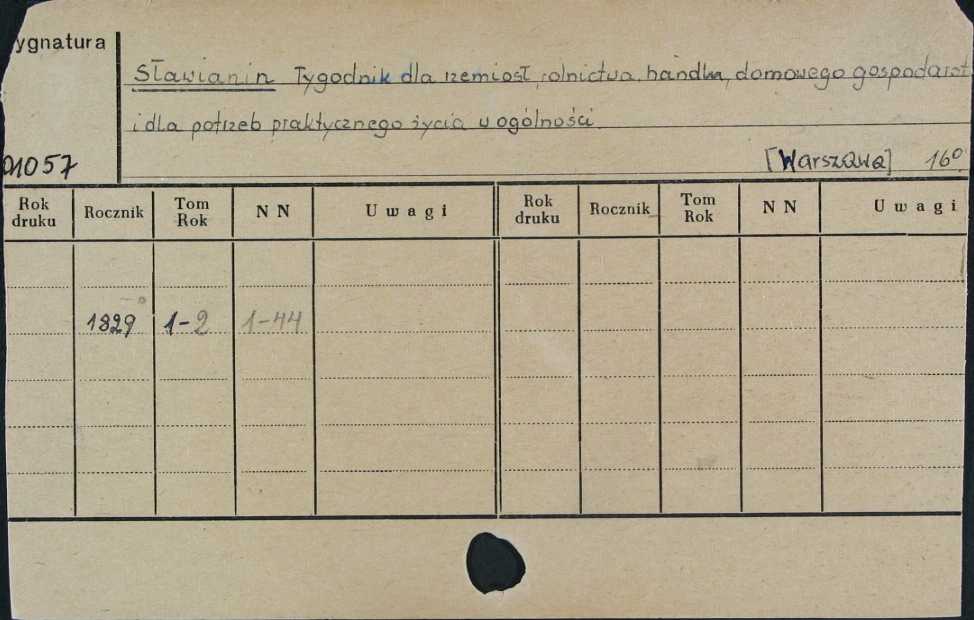 ygnatura
Sławianin Tygodnik dla rzemiosł, rolnictwa, handlu, domowego gospodarst
i dla potrzeb praktycznego życia w ogólności
01057
[Warszawa] 16⁰
Rok druku Rocznik Tom Rok N N Uwagi Rok druku Rocznik Tom Rok N N Uwagi
1829 1-2 1-44